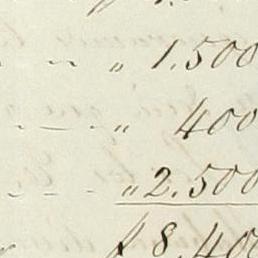 " 1.500
" 400
" 2.500
8.400